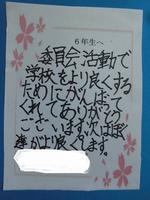 6年生へ
委員会活動で
学校をより良くする
ためにがんばって
くれてありがとう
ございます。次はぼく
達がより良くします。